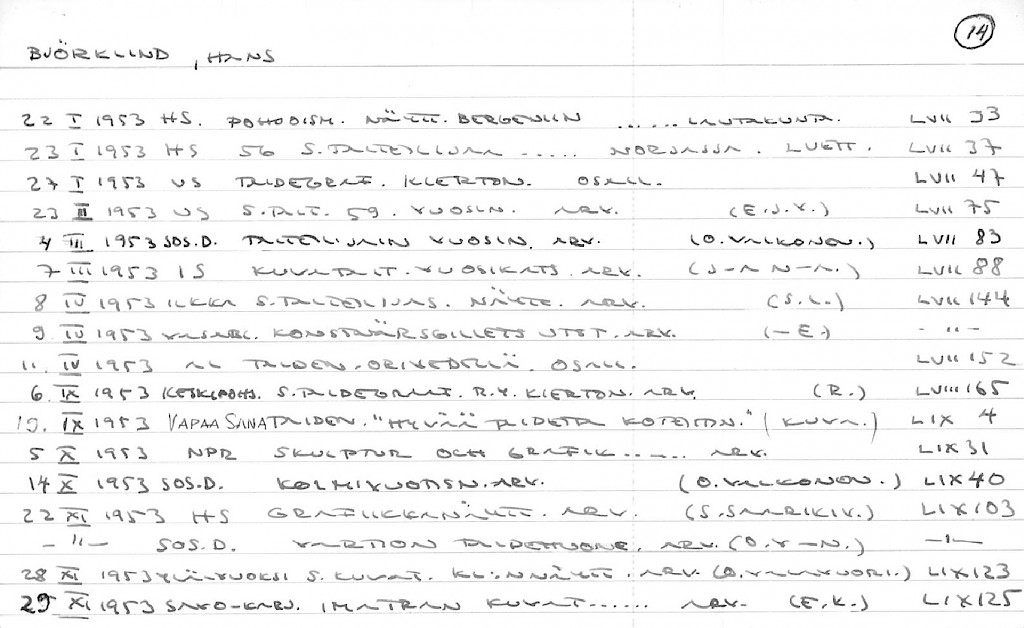 14
BJÖRKLIND, HANS
22 I 1953 HS. POHODISM. NÄYTT. BERGENIIN ...... LAUTAKUNTA. LVII 33
23 I 1953 HS 56 S.TAITEILIJAA ..... NORJASSA. LUETT. LVII 37
27 I 1953 US TAIDEGRAF. KIERTON. OSALL. LVII 47
23 II 1953 US S.TAIT. 59. VUOSIN. ARV. (E.J.V.) LVII 75
4 III 1953 SOS.D. TAITEILIJAIN VUOSIN. ARV. (O.VALKONEN.) LVII 83
7 III 1953 IS KUVATAIT. VUOSIKATS. ARV. (J-A N-A.) LVII 88
8 IV 1953 ILKKA S.TAITEILIJAS. NÄYTT. ARV. (S.L.) LVII 144
9. IV 1953 VASABL. KONSTNÄRSGILLETS UTST. ARV. (-E.) - " -
11. IV 1953 AL TAIDEN. ORIVEDELLÄ OSALL. LVII 152
6 IX 1953 KESKIPOHJ. S.TAIDEGRAAF. R.Y. KIERTON. ARV. (R.) LVIII 165
19. IX 1953 VAPAA SANA TAIDEN. "HYVÄÄ TAIDETA KOTEIHIN." (KUVA.) LIX 4
5 X 1953 NPR SKULPTUR OCH GRAFIK ...... ARV. LIX 31
14 X 1953 SOS.D. KOLMIVUOTISN. ARV. (O.VALKONEN.) LIX 40
22 XI 1953 HS GRAFIIKKANÄYTT. ARV. (S.SAARIKIV.) LIX 103
- " - SOS.D. VARTION TAIDEHUONE. ARV. (O.V-N.) - " -
28 XI 1953 YLÄ-VUOKSI S. KUVAT. KL:N NÄYTT. ARV. (O.VALAVUORI.) LIX 123
29 XI 1953 SAVO-KARJ. IMATRAN KUVAT...... ARV. (E.K.) LIX 125